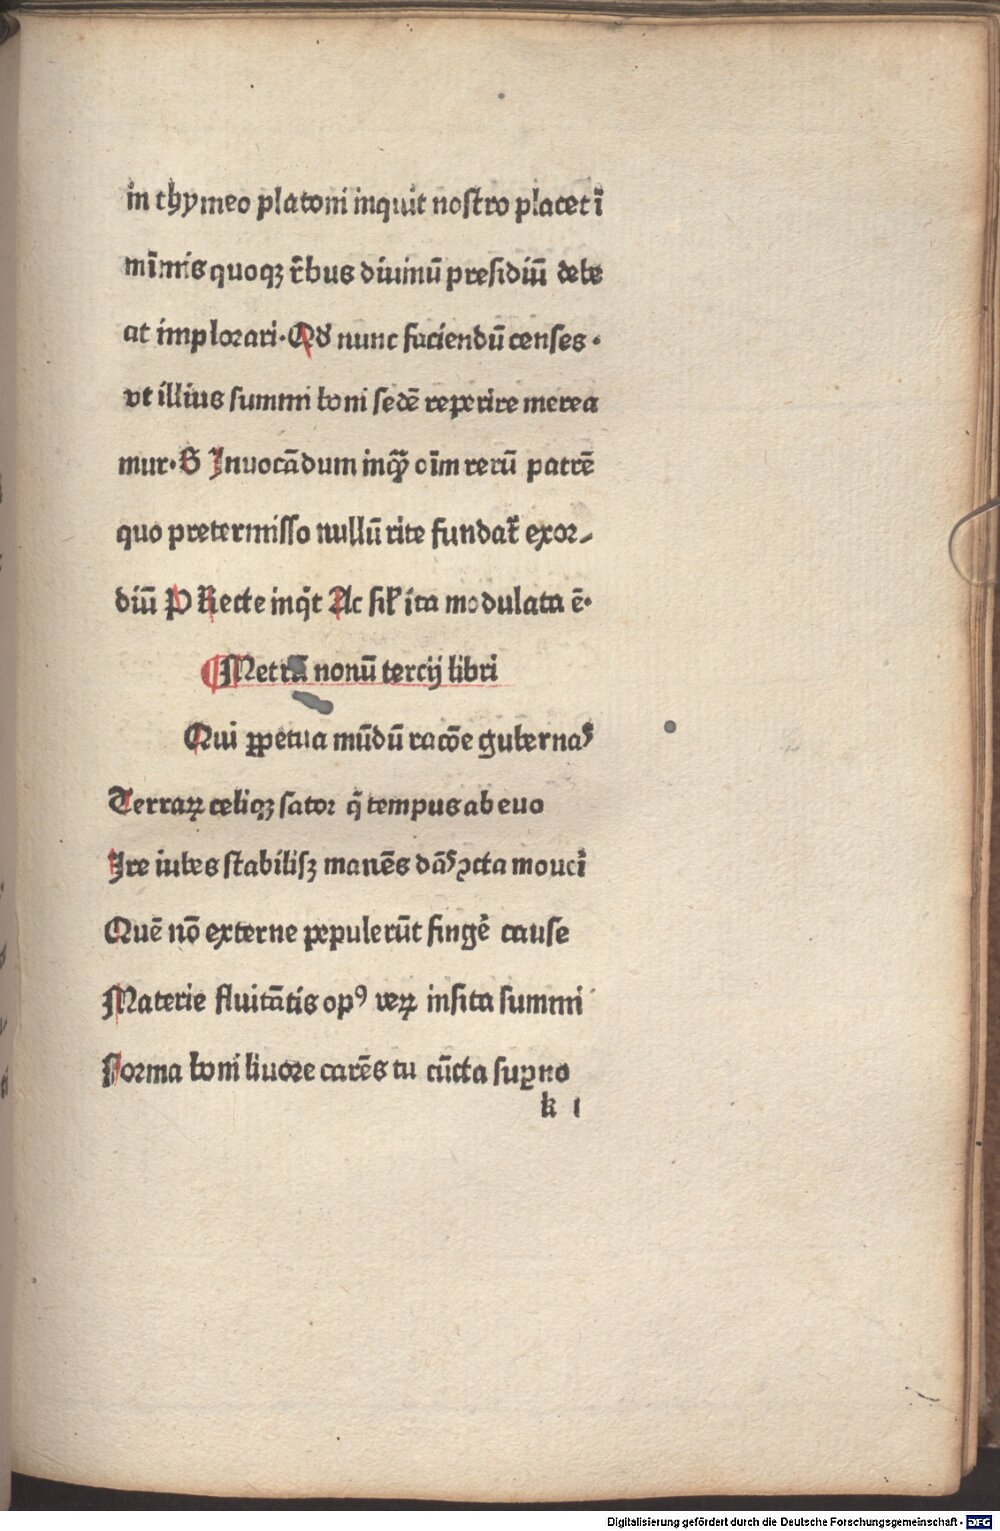 in thymeo platoni inquit nostro placet ī
mīmis quoqꝫ r̄bus diuinū presidiū debe
at implorari. Qð nunc faciendū censes.
vt illius summi boni sedē reperire merea
mur. B Inuocādum inqͫ oīm rerū patrē
quo pretermisso nullū rite fundat̄ exor-
diū P Recte inqͥt Ac sil̄ ita modulata ē.
Metrū nonū tercij libri
Qui ꝑpetua mūdū racōe gubernas
Terraꝝ celiqꝫ sator q̄ tempus ab euo
Ire iubes stabilisqꝫ manēs dās ꝯcta moueri
Quē nō externe pepulerūt finge᷑ cause
Materie fluitātis opꝰ veꝝ insita summi
Forma boni liuore carēs tu cūcta suꝑno
k i
Digitalisierung gefördert durch die Deutsche Forschungsgemeinschaft - DFG